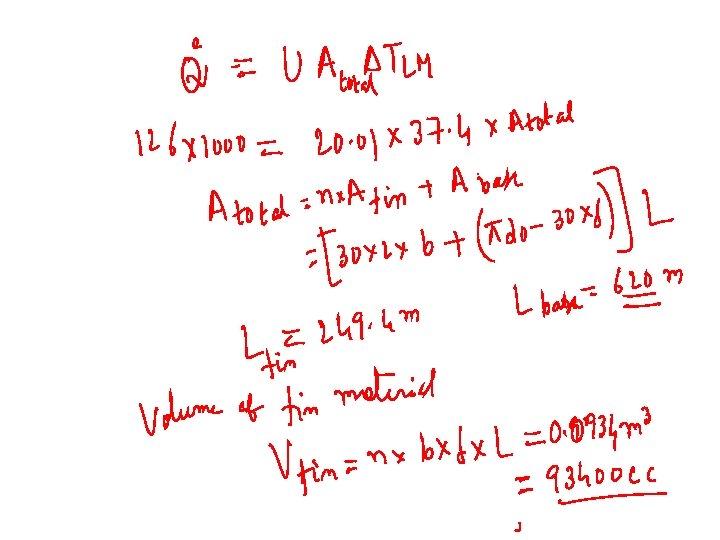 Q̇ = U A total ΔT LM
126 x 1000 = 20.01 x 37.4 x Atotal
A total = n x A fin + A base
= [30 x 2 x b + (πdo - 30 x δ)] L
L base = 620 m
L fin = 249.4 m
Volume of fin material
V fin = n x b x δ x L = 0.0934 m³
= 93400 cc